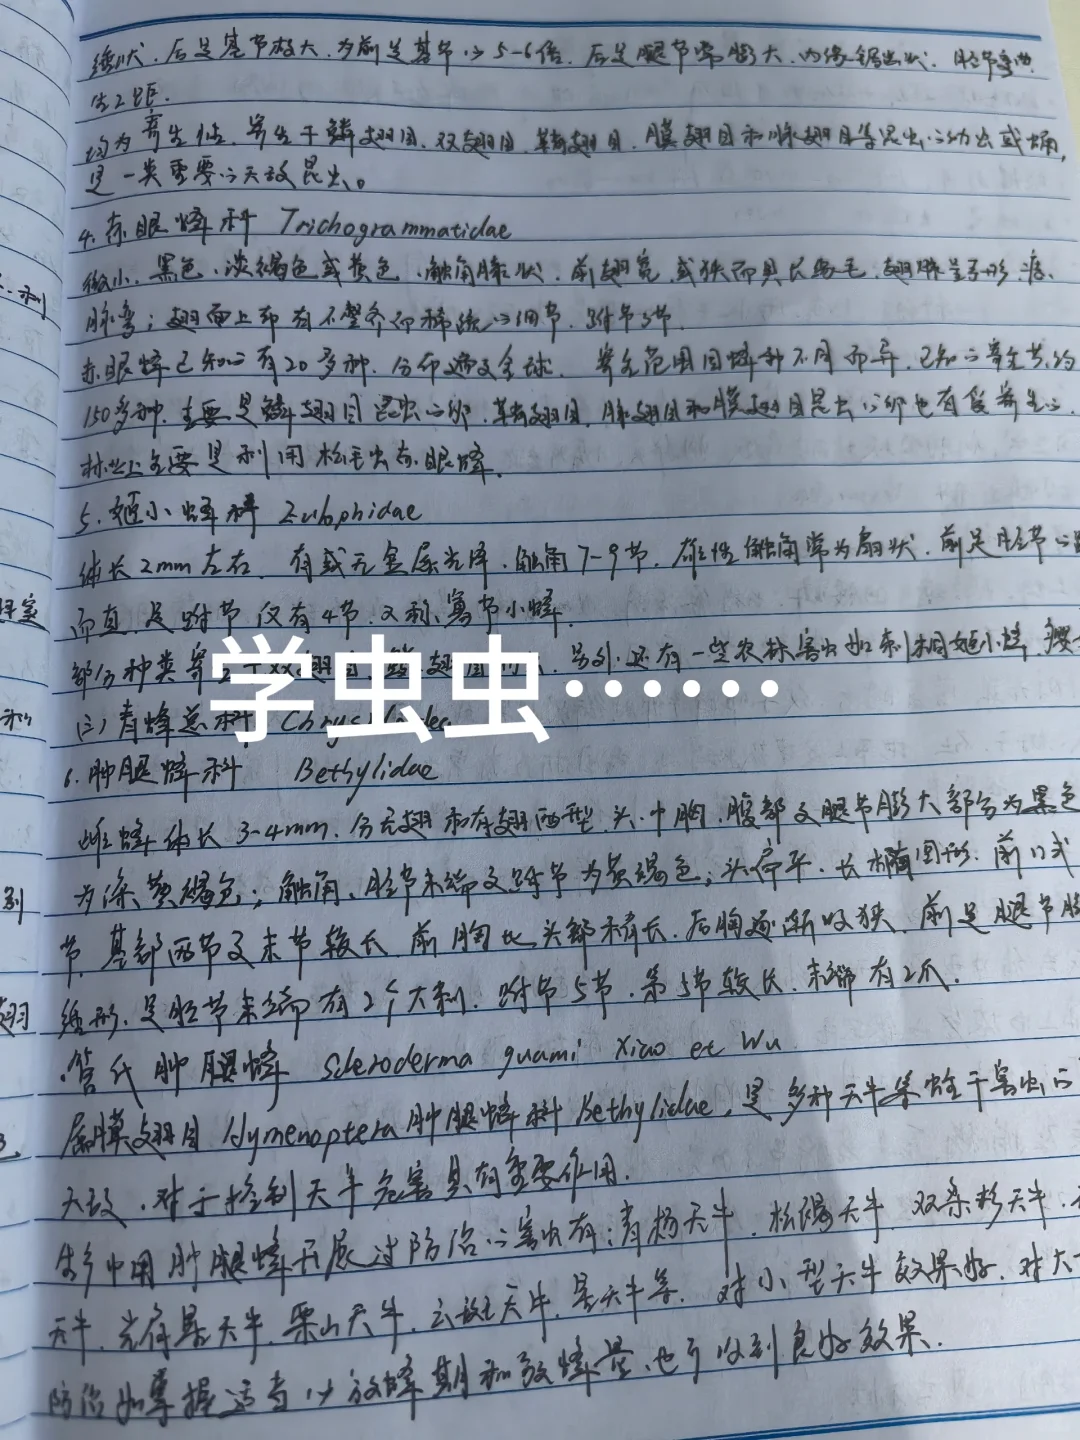 线状。后足基节极大，为前足基节的5-6倍，后足腿节常膨大，内缘锯齿状，胫节弯曲，
生2距。
均为寄生性，寄生于鳞翅目、双翅目、鞘翅目、膜翅目和脉翅目等昆虫的幼虫或蛹，
是一类重要的天敌昆虫。
4. 赤眼蜂科 Trichogrammatidae
微小，黑色、淡褐色或黄色，触角膝状，前翅宽，或狭而具长缘毛，翅脉呈
脉弯；翅面上布有不整齐而稀疏的细节，跗节3节.
赤眼蜂已知的有20多种，分布遍及全球。寄主范围因蜂种不同而异，已知的寄主共约
150多种，主要是鳞翅目昆虫的卵，鞘翅目、脉翅目和膜翅目昆虫的卵也有被寄生的，
林业上主要是利用松毛虫赤眼蜂.
5. 姬小蜂科 Eulophidae
体长2mm左右，有或无金属光泽，触角7-9节，雄性触角常为扇状，前足胫节的距
而直，足跗节仅有4节，又称寡节小蜂.
部分种类寄生于双翅目、鳞翅目 另外，还有一些农林害虫如刺桐姬小蜂
学虫虫……
(三) 青蜂总科
6. 肿腿蜂科 Bethylidae
雌蜂体长3-4mm，分无翅和有翅两型，头、中胸、腹部及腿节膨大部分为黑色
为深黄褐色；触角、胫节末端及跗节为黄褐色；头扁平，长椭圆形，前口式
节，基部两节及末节较长，前胸比头部稍长，后胸逐渐收狭，前足腿节膨
缍形，足胫节末端有2个大刺，跗节5节，第5节较长，末端有2爪.
管氏肿腿蜂 Scleroderma guani Xiao et Wu
属膜翅目 Hymenoptera 肿腿蜂科 Bethylidae，是多种天牛等蛀干害虫的
天敌，对于控制天牛危害具有重要作用.
生产中用肿腿蜂开展过防治的害虫有：青杨天牛、松褐天牛、双条杉天牛、
天牛、光肩星天牛、栗山天牛、云斑天牛、星天牛等，对小型天牛效果好，对大
防治如掌握适当的放蜂期和放蜂量，也可收到良好效果.